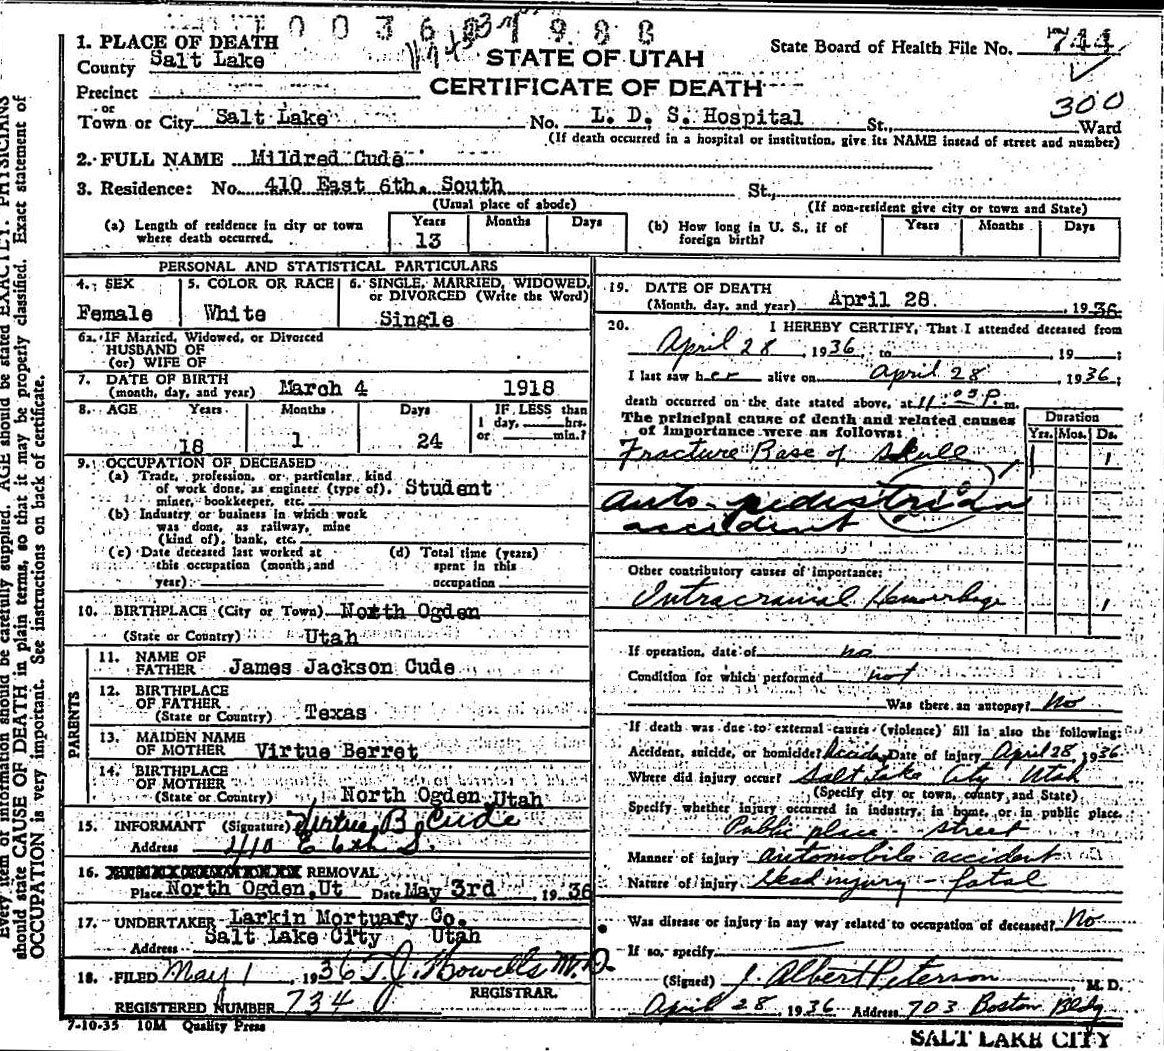 0 0 3 6 9 8 8
1. PLACE OF DEATH
County Salt Lake
STATE OF UTAH
State Board of Health File No. 744
Precinct
CERTIFICATE OF DEATH
300
or
Town or City Salt Lake No. L. D. S. Hospital St., Ward
(If death occurred in a hospital or institution, give its NAME insead of street and number)
2. FULL NAME Mildred Cude
3. Residence: No. 410 East 6th. South St.,
(Usual place of abode) (If non-resident give city or town and State)
(a) Length of residence in city or town where death occurred. Years 13 Months Days
(b) How long in U. S., if of foreign birth? Years Months Days
PERSONAL AND STATISTICAL PARTICULARS
4. SEX Female
5. COLOR OR RACE White
6. SINGLE, MARRIED, WIDOWED, or DIVORCED (Write the Word) Single
6a. IF Married, Widowed, or Divorced
HUSBAND OF
(or) WIFE OF
7. DATE OF BIRTH
(month, day, and year) March 4 1918
8. AGE Years 18 Months 1 Days 24
IF LESS than 1 day, hrs. or min.?
9. OCCUPATION OF DECEASED
(a) Trade, profession, or particular kind
of work done, as engineer (type of), Student
miner, bookkeeper, etc.
(b) Industry or business in which work
was done, as railway, mine
(kind of), bank, etc.
(c) Date deceased last worked at
this occupation (month, and
year)
(d) Total time (years)
spent in this
occupation
10. BIRTHPLACE (City or Town) North Ogden
(State or Country) Utah
PARENTS
11. NAME OF
FATHER James Jackson Cude
12. BIRTHPLACE
OF FATHER
(State or Country) Texas
13. MAIDEN NAME
OF MOTHER Virtue Berret
14. BIRTHPLACE
OF MOTHER
(State or Country) North Ogden, Utah
15. INFORMANT (Signature) Virtue B. Cude
Address 410 E 6th S.
16. REMOVAL
Place North Ogden, Ut Date May 3rd, 1936
17. UNDERTAKER Larkin Mortuary Co.
Address Salt Lake City Utah
18. FILED May 1, 1936 T. J. Howells M.D.
REGISTRAR.
REGISTERED NUMBER 734
7-10-35 10M Quality Press
19. DATE OF DEATH
(Month, day, and year) April 28. , 1936
20. I HEREBY CERTIFY, That I attended deceased from
April 28, 1936, to , 19 ;
I last saw her alive on April 28, 1936;
death occurred on the date stated above, at 11:05 P. m.
The principal cause of death and related causes
of importance were as follows:
Duration
Yrs. Mos. Ds.
Fracture Base of Skull 1
Auto-pedistrian
accident
Other contributory causes of importance:
Intracranial Hemorrhage 1
If operation, date of no
Condition for which performed not
Was there an autopsy? No
If death was due to external causes (violence) fill in also the following:
Accident, suicide, or homicide? Accident Date of injury April 28, 1936
Where did injury occur? Salt Lake City Utah
(Specify city or town, county, and State)
Specify whether injury occurred in industry, in home, or in public place.
Public place - street
Manner of injury automobile accident
Nature of injury Head injury - fatal
Was disease or injury in any way related to occupation of deceased? No
If so, specify
(Signed) J. Albert Peterson, M. D.
April 28, 1936 Address 703 Boston Bldg
SALT LAKE CITY
Every item of information should be carefully supplied. AGE should be stated EXACTLY. PHYSICIANS
should state CAUSE OF DEATH in plain terms, so that it may be properly classified. Exact statement of
OCCUPATION is very important. See instructions on back of certificate.